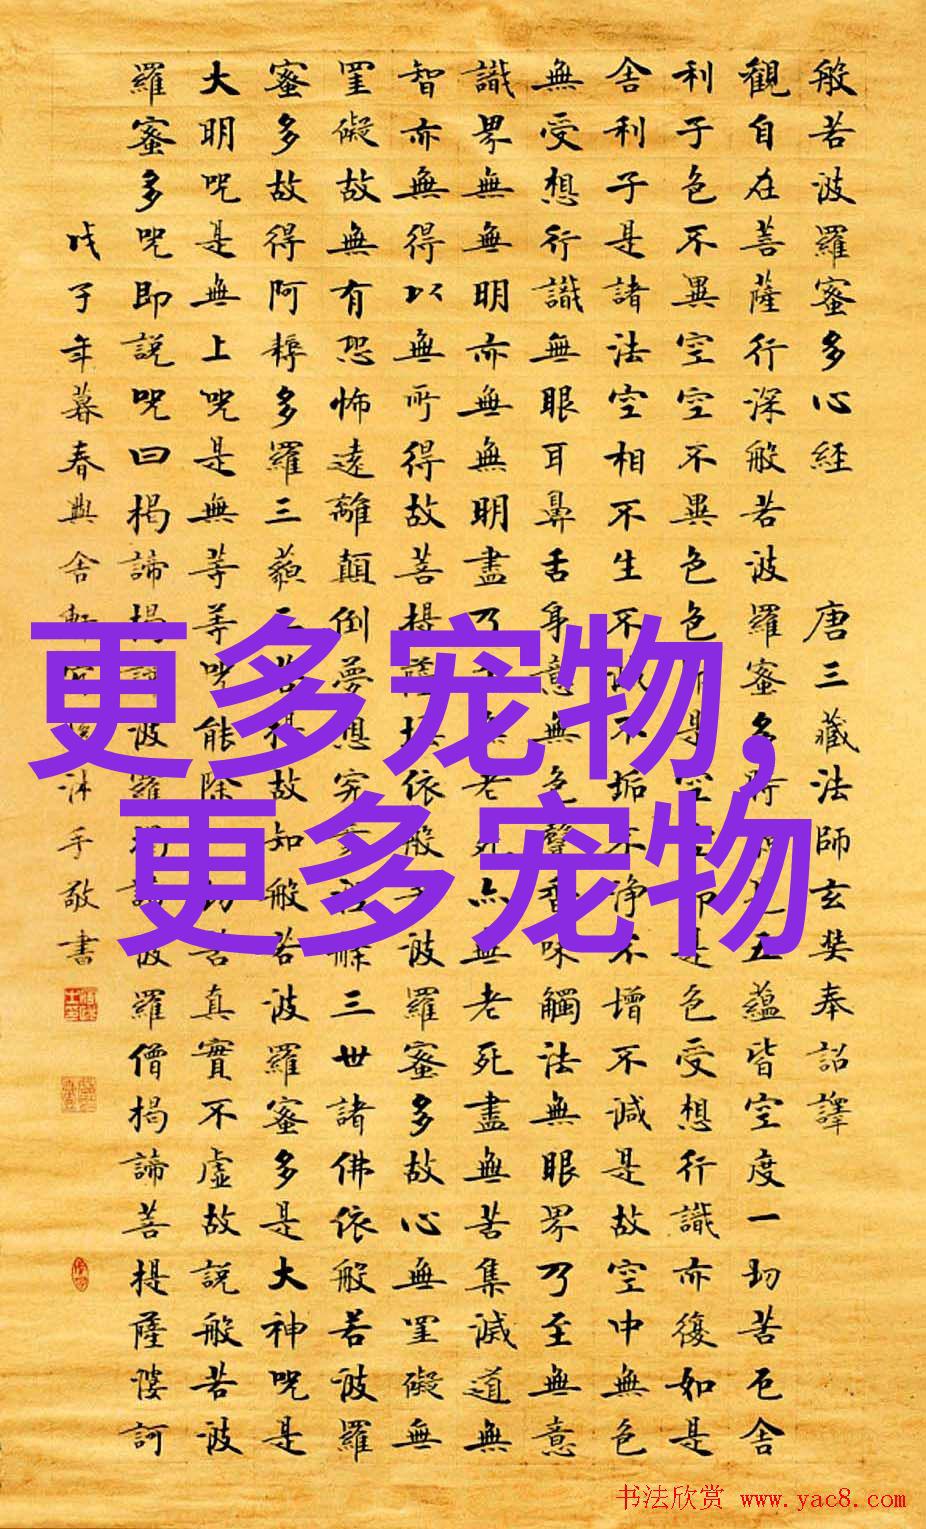 般若波羅蜜多心經 唐三藏法師玄奘奉詔譯
觀自在菩薩行深般若波羅蜜多時照五蘊皆空度一切苦厄舍
利子色不異空空不異色色即是空空即是色受想行識亦復如是
舍利子是諸法空相不生不滅不垢不淨不增不減是故空中無色
無受想行識無眼耳鼻舌身意無色聲香味觸法無眼界乃至無意
識界無無明亦無無明盡乃無老死亦無老死盡無苦集滅道無
智亦無得以無所得故菩提薩埵依般若波羅蜜多故心無罣礙無
罣礙故無有恐怖遠離顛倒夢想究三世諸佛依般若波羅
蜜多故得阿耨多羅三藐三菩故知般若波羅蜜多是大神呪是
大明呪是無上呪是無等等呪能除切苦真實不虛故說般若波
羅蜜多呪即說呪曰揭諦揭諦波羅揭諦波羅僧揭諦菩提薩婆訶
戊子年暮春興舍軒沐手敬書
更多宠物，
更多宠物
书法欣赏 www.yac8.com